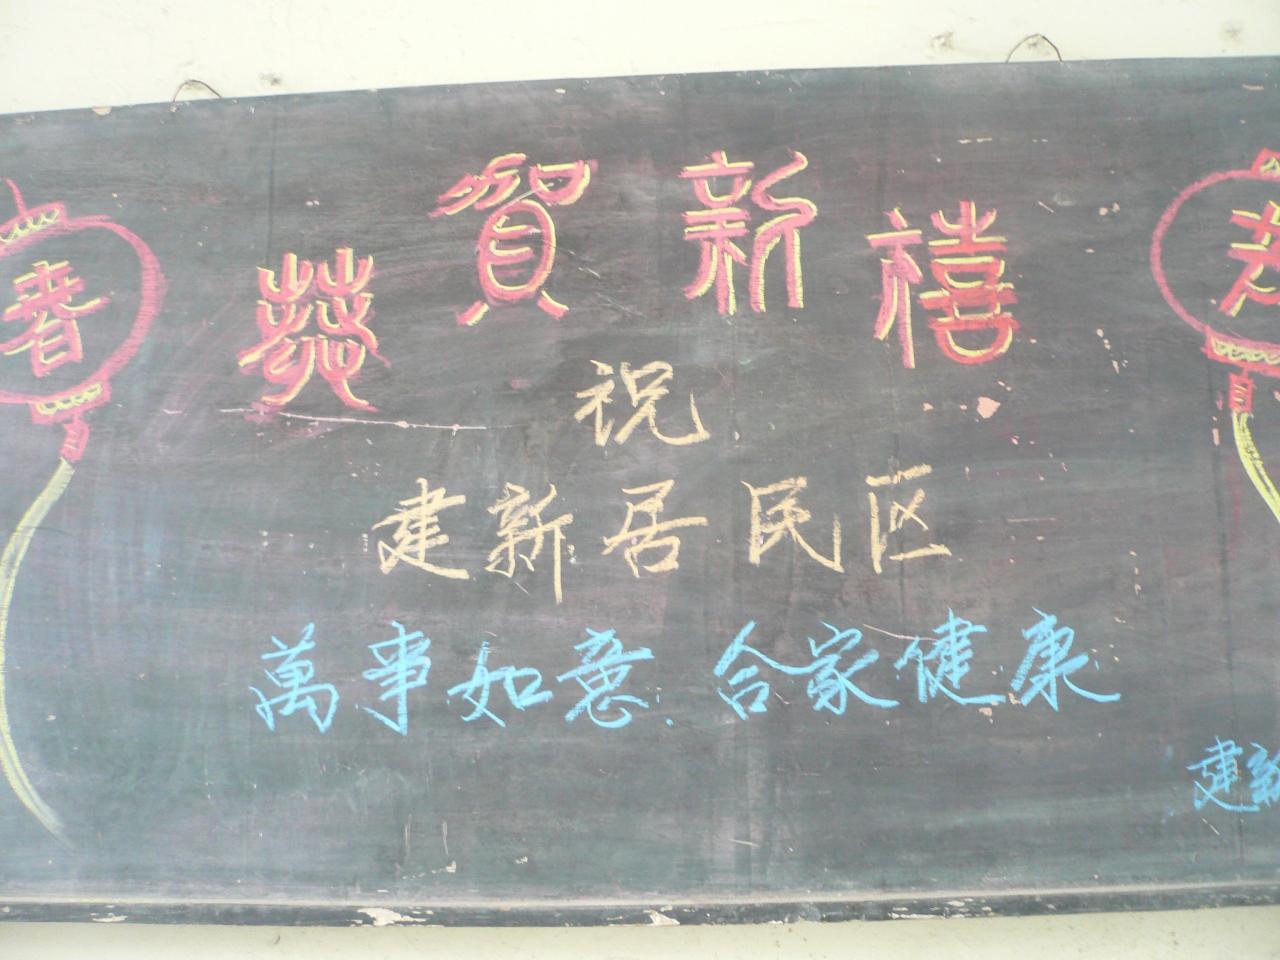 恭贺新禧
春
祝
建新居民区
萬事如意.合家健康
建新